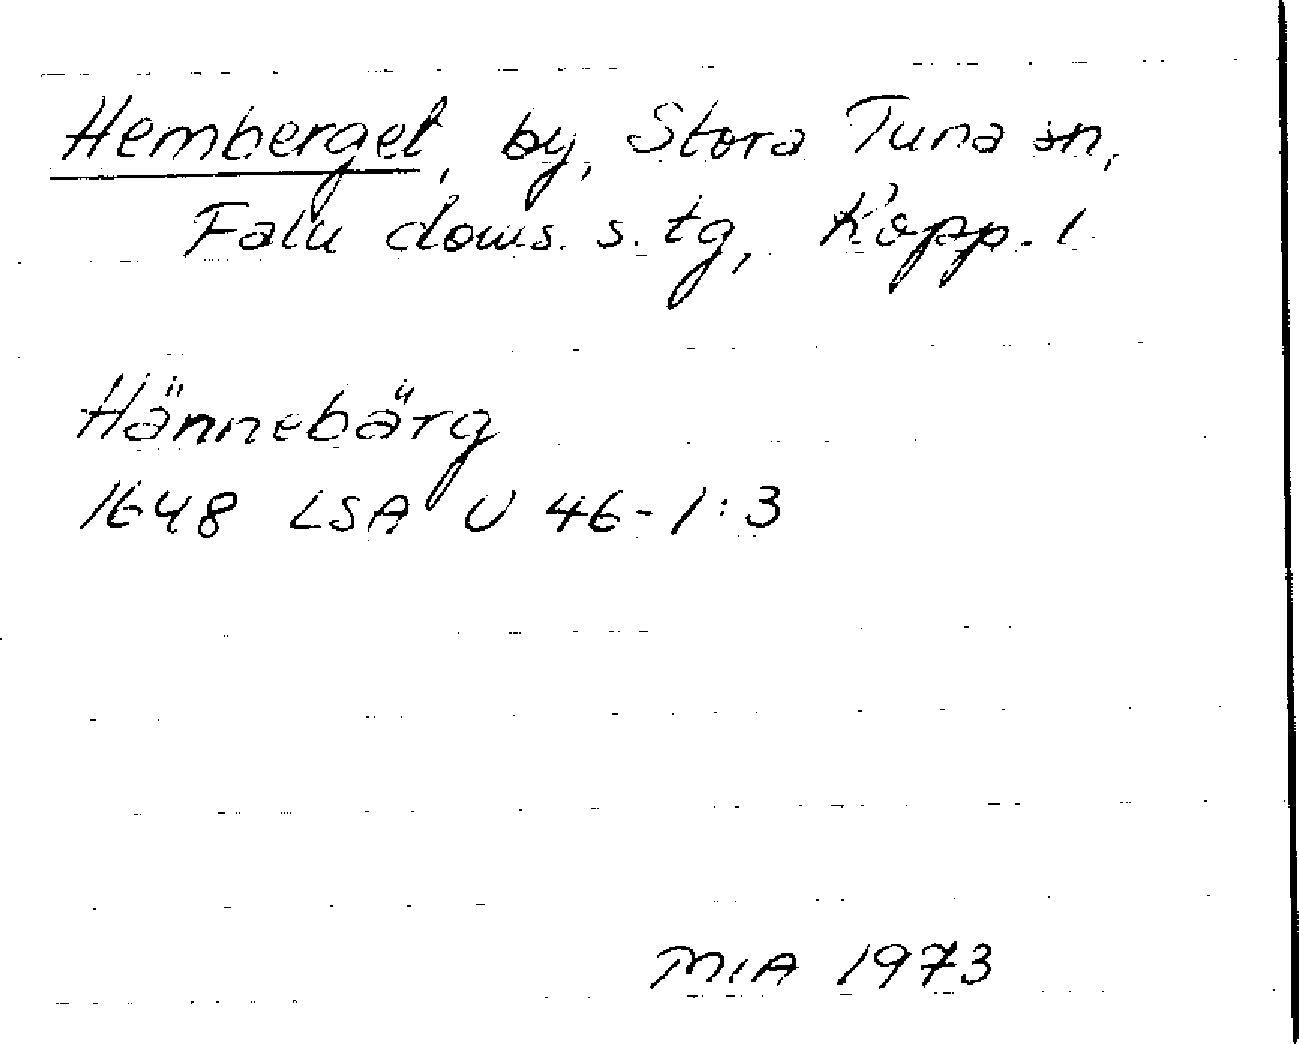 Hemberget, by, Stora Tuna sn,
Falu doms. s. tg, Kopp. l
Hännebärg
1648 LSA U 46-1:3
MIA 1973